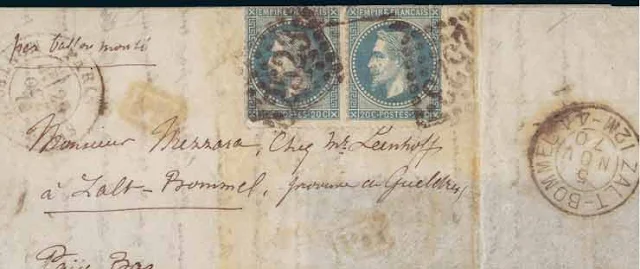 par ballon monté
EMPIRE FRANÇAIS
20C POSTES 20C
EMPIRE FRANÇAIS
20C POSTES 20C
Monsieur Mezzara, Chez Mr Leenhoff
à Zalt-Bommel, province de Gueldres
Pays Bas
ZALT-BOMMEL
5
NOV
70
12M-4A